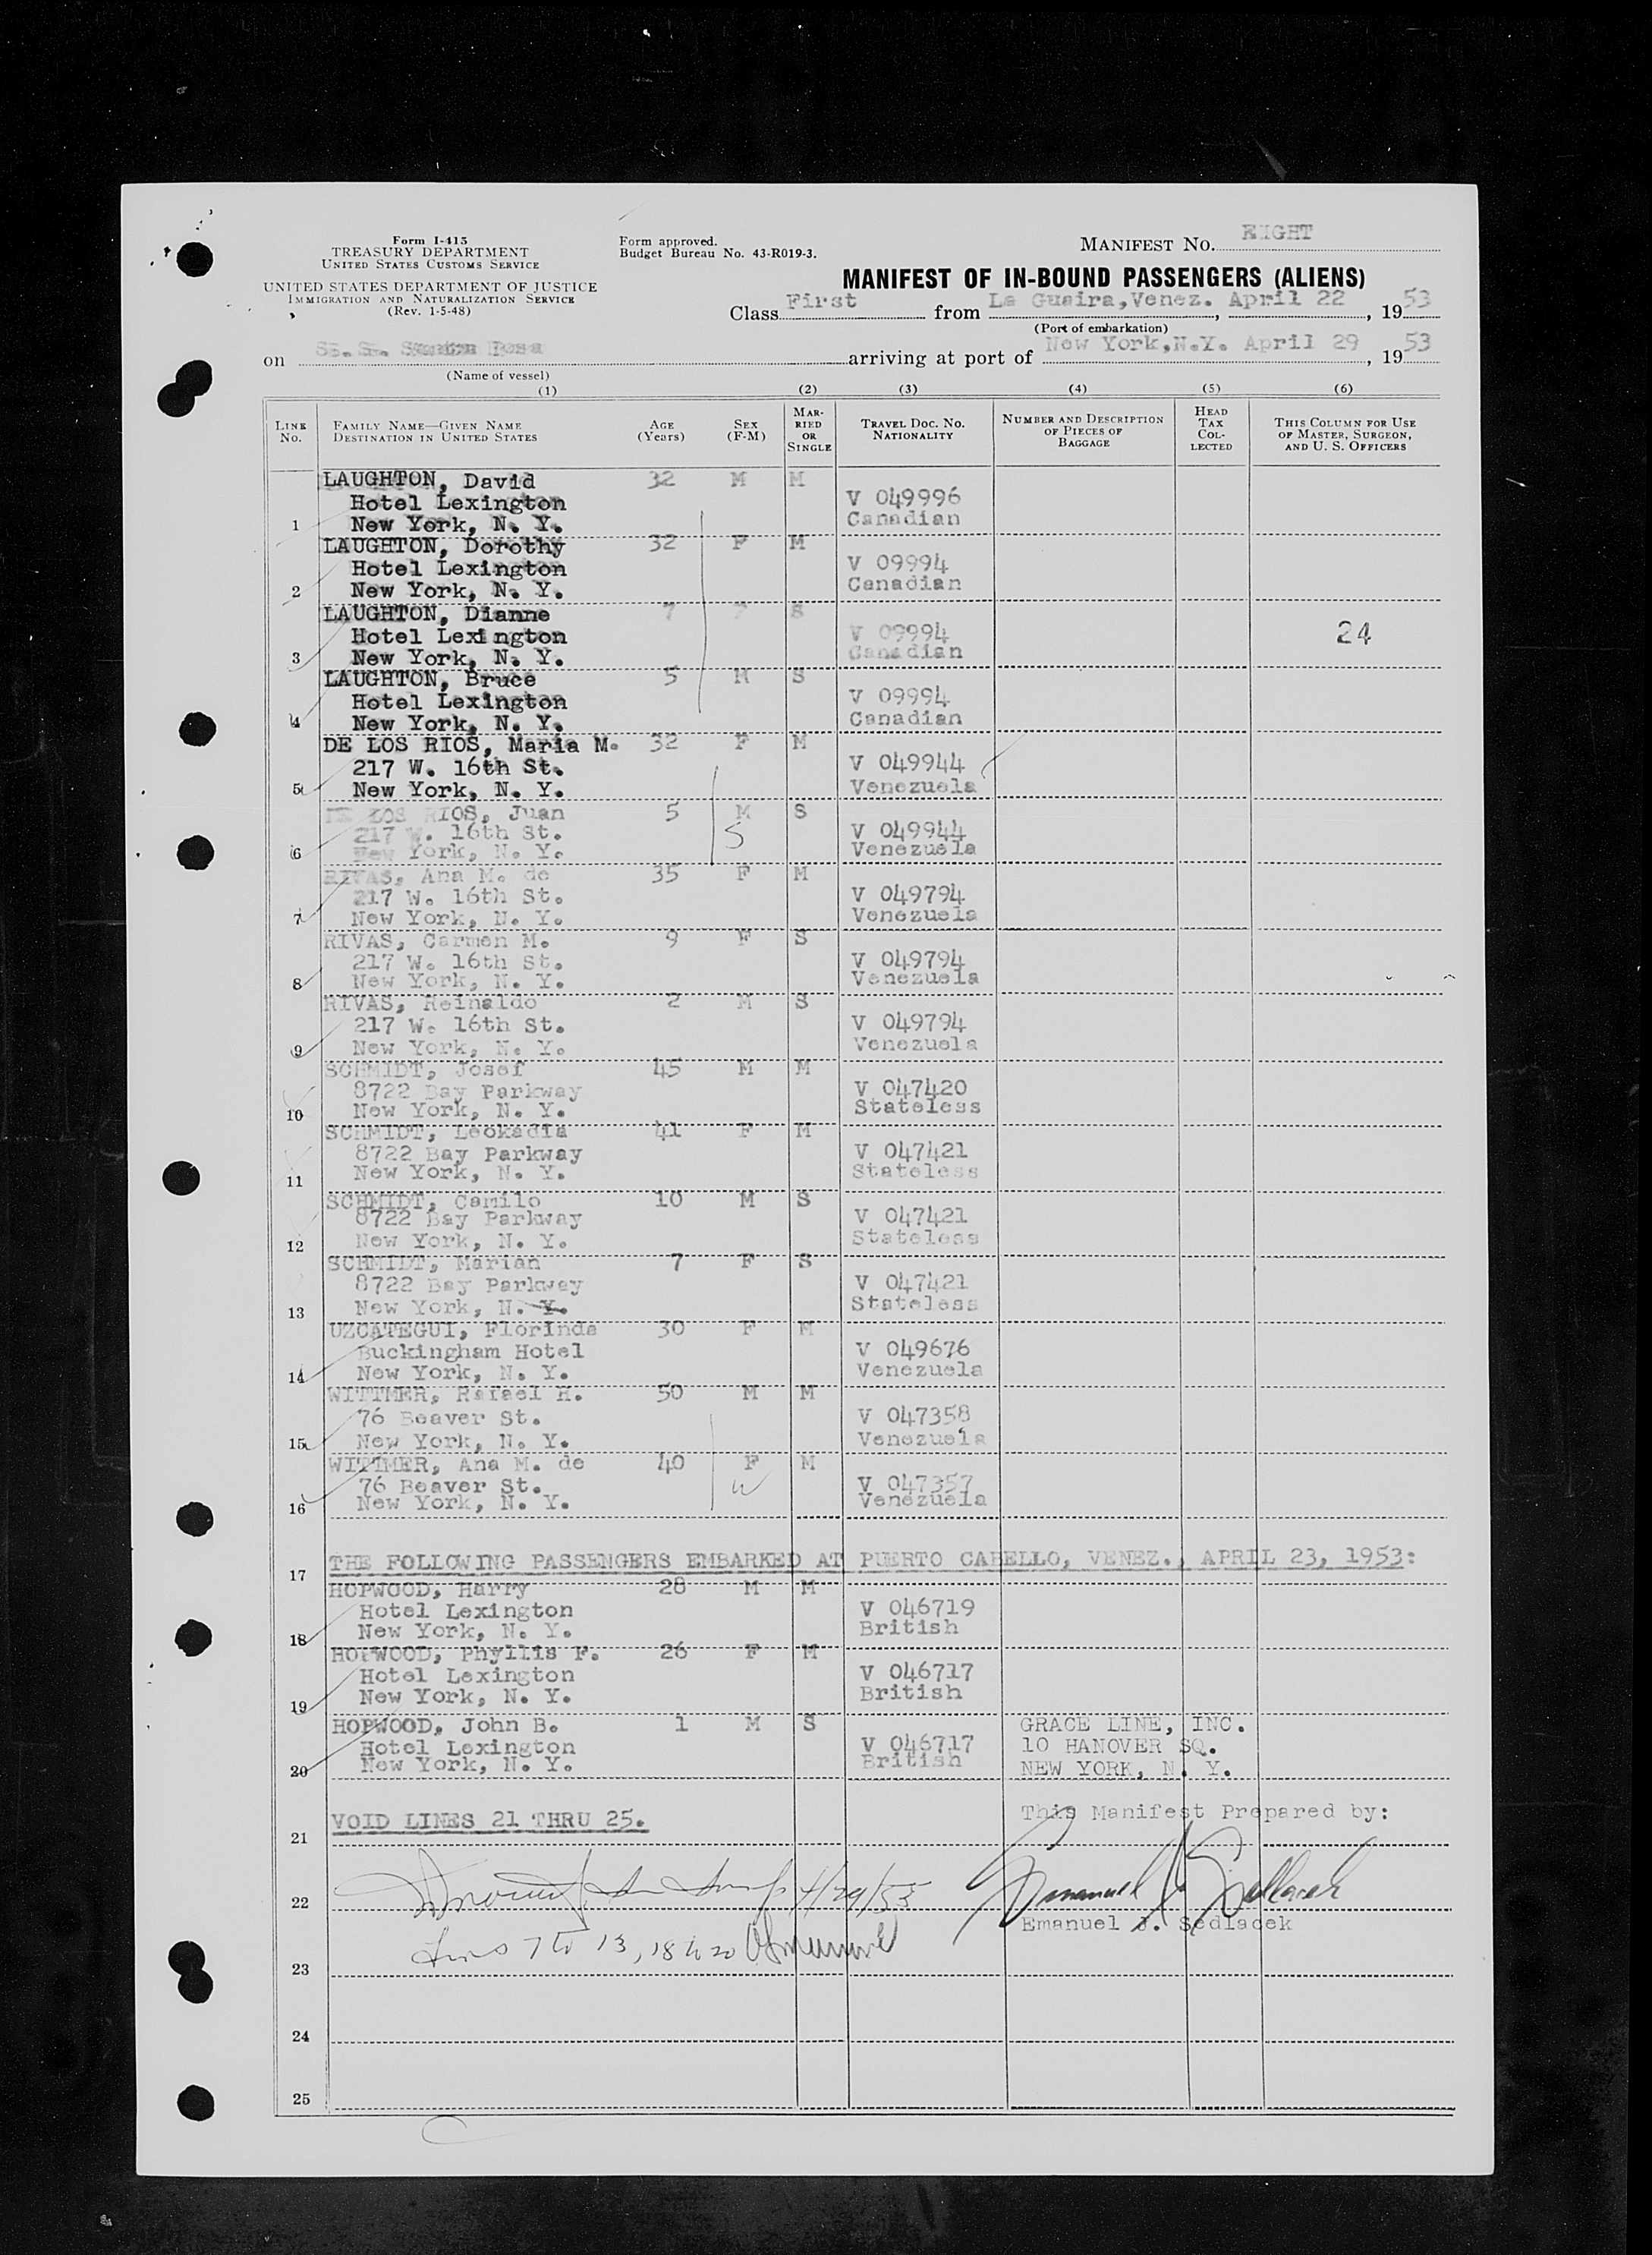 Form I-415
TREASURY DEPARTMENT
UNITED STATES CUSTOMS SERVICE
UNITED STATES DEPARTMENT OF JUSTICE
IMMIGRATION AND NATURALIZATION SERVICE
(Rev. 1-5-48)
Form approved.
Budget Bureau No. 43-R019-3.
MANIFEST NO. EIGHT
MANIFEST OF IN-BOUND PASSENGERS (ALIENS)
Class First from La Guaira, Venez. April 22, 1953
(Port of embarkation)
on SS. Santa Rosa arriving at port of New York, N.Y. April 29, 1953
(Name of vessel)
(1) (2) (3) (4) (5) (6)
LINE No. FAMILY NAME—GIVEN NAME DESTINATION IN UNITED STATES AGE (Years) SEX (F-M) MARRIED OR SINGLE TRAVEL DOC. NO. NATIONALITY NUMBER AND DESCRIPTION OF PIECES OF BAGGAGE HEAD TAX COLLECTED THIS COLUMN FOR USE OF MASTER, SURGEON, AND U. S. OFFICERS
LAUGHTON, David 32 M M
Hotel Lexington V 049996
1 New York, N. Y. Canadian
LAUGHTON, Dorothy 32 F M
Hotel Lexington V 09994
2 New York, N. Y. Canadian
LAUGHTON, Dianne 7 S
Hotel Lexington V 09994 24
3 New York, N. Y. Canadian
LAUGHTON, Bruce 5 M S
Hotel Lexington V 09994
4 New York, N. Y. Canadian
DE LOS RIOS, Maria M. 32 F M
217 W. 16th St. V 049944
5 New York, N. Y. Venezuela
DE LOS RIOS, Juan 5 M S
217 W. 16th St. S V 049944
6 New York, N. Y. Venezuela
RIVAS, Ana M. de 35 F M
217 W. 16th St. V 049794
7 New York, N. Y. Venezuela
RIVAS, Carmen M. 9 F S
217 W. 16th St. V 049794
8 New York, N. Y. Venezuela
RIVAS, Reinaldo 2 M S
217 W. 16th St. V 049794
9 New York, N. Y. Venezuela
SCHMIDT, Josef 45 M M
8722 Bay Parkway V 047420
10 New York, N. Y. Stateless
SCHMIDT, Leokadia 41 F M
8722 Bay Parkway V 047421
11 New York, N. Y. Stateless
SCHMIDT, Camilo 10 M S
8722 Bay Parkway V 047421
12 New York, N. Y. Stateless
SCHMIDT, Marian 7 F S
8722 Bay Parkway V 047421
13 New York, N. Y. Stateless
UZCATEGUI, Florinda 30 F M
Buckingham Hotel V 049676
14 New York, N. Y. Venezuela
WITTMER, Rafael H. 50 M M
76 Beaver St. V 047358
15 New York, N. Y. Venezuela
WITTMER, Ana M. de 40 F M
76 Beaver St. V 047357
16 New York, N. Y. Venezuela
17 THE FOLLOWING PASSENGERS EMBARKED AT PUERTO CABELLO, VENEZ., APRIL 23, 1953:
HOPWOOD, Harry 28 M M
Hotel Lexington V 046719
18 New York, N. Y. British
HOPWOOD, Phyllis F. 26 F M
Hotel Lexington V 046717
19 New York, N. Y. British
HOPWOOD, John B. 1 M S GRACE LINE, INC.
Hotel Lexington V 046717 10 HANOVER SQ.
20 New York, N. Y. British NEW YORK, N. Y.
This Manifest Prepared by:
21 VOID LINES 21 THRU 25.
22 4/29/53
Emanuel J. Sedlacek
Emanuel J. Sedlacek
Lines 7 to 13, 18 to 20
23
24
25